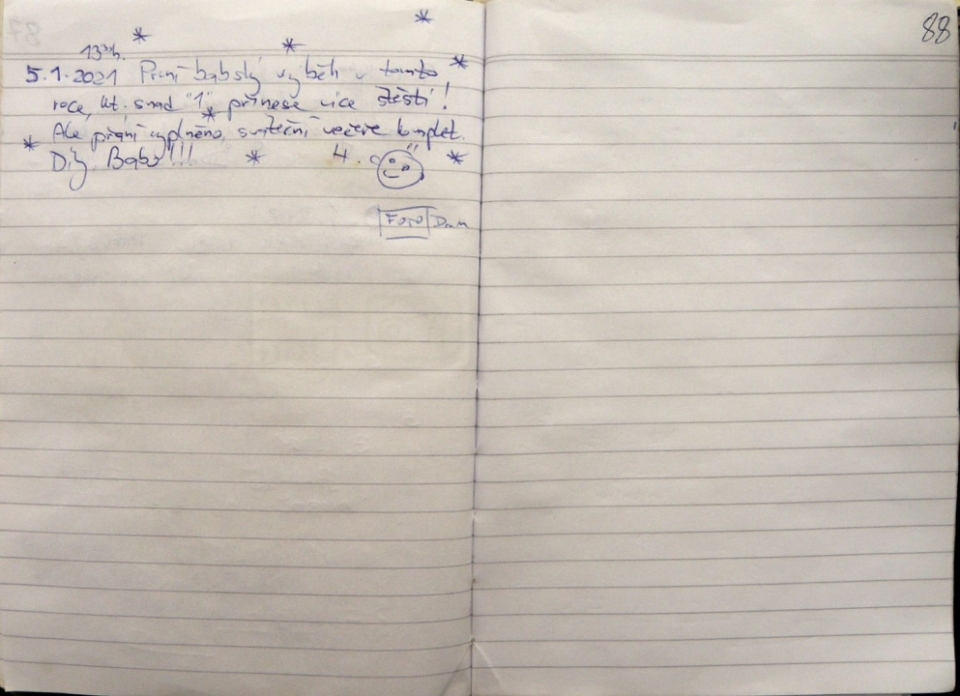 88
13³⁰h.
5.1.2021 První babský výběh v tomto
roce, kt. snad "1" přinese více štěstí!
Ale přání vyplněno, sváteční večeře komplet.
Díky Babo!!!
4.
FOTO